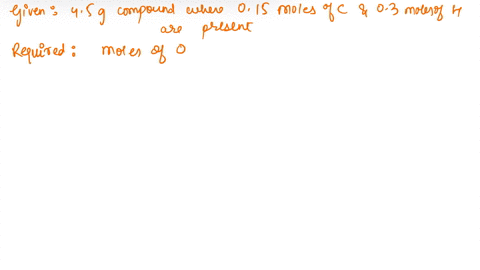 Given: 4.5 g compound where 0.15 moles of C & 0.3 moles of H
are present
Required: moles of O